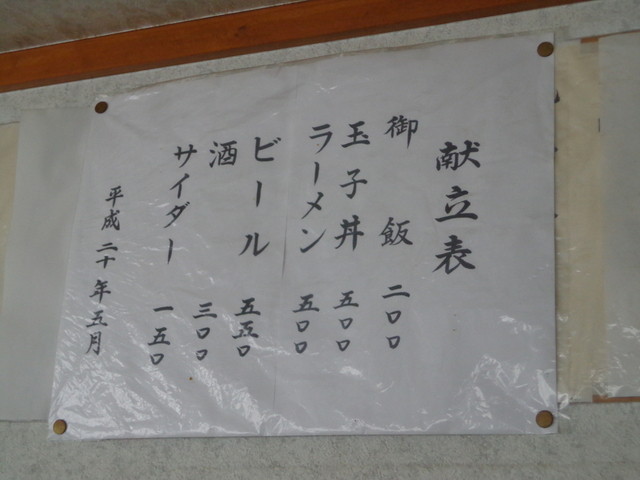 献立表
御飯 二〇〇
玉子丼 五〇〇
ラーメン 五〇〇
ビール 五五〇
酒 三〇〇
サイダー 一五〇
平成二十年五月